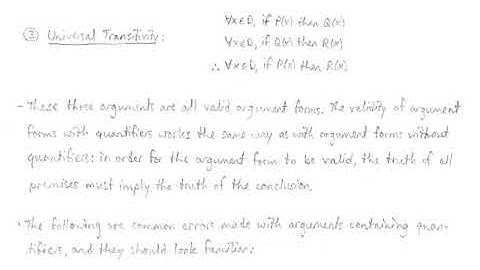 ③ Universal Transitivity:
∀x∈D, if P(x) then Q(x)
∀x∈D, if Q(x) then R(x)
∴ ∀x∈D, if P(x) then R(x)
- These three arguments are all valid argument forms. The validity of argument
forms with quantifiers works the same way as with argument forms without
quantifiers: in order for the argument form to be valid, the truth of all
premises must imply the truth of the conclusion.
• The following are common errors made with arguments containing quan-
tifiers, and they should look familiar: